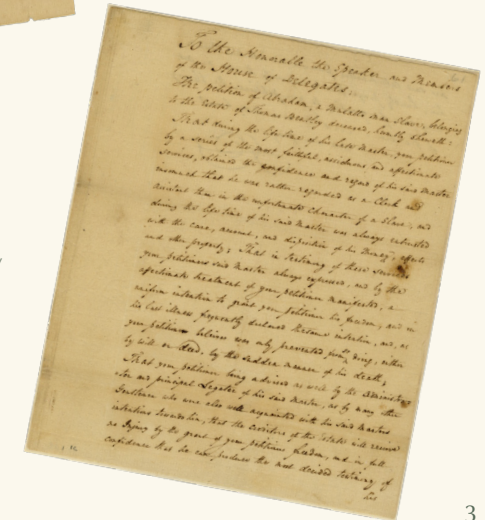 To the Honorable the Speaker and Members
of the House of Delegates.
The petition of Abraham, a Mulatto man Slave, belonging
to the Estate of Thomas Brantley deceased, humbly sheweth:
That during the life time of his late Master, your petitioner
by a series of the most faithful, assiduous and affectionate
Services, obtained the confidence and regard of his said Master
insomuch that he was rather regarded as a Clerk and
assistant than in the unfortunate Character of a Slave; and
during the life time of his said Master was always entrusted
with the care, amount, and disposition of his Money, effects
and other property; That in testimony of these Services
your petitioners said Master always expressed, and by the
affectionate treatment of your petitioner manifested, a
uniform intention to grant your petitioner his freedom, and in
his last illness frequently declared the same intention, and, as
your petitioner believes was only prevented from doing, either
by will or deed, by the sudden manner of his death;
That your petitioner being advised as well by the administrator
and principal Legatee of his said Master, as by many other
Gentlemen who were also well acquainted with his said Masters
intentions towards him, that the execution of the Estate will receive
no Injury by the grant of your petitioners freedom, and in full
confidence that he can produce the most decided testimony of
his
3